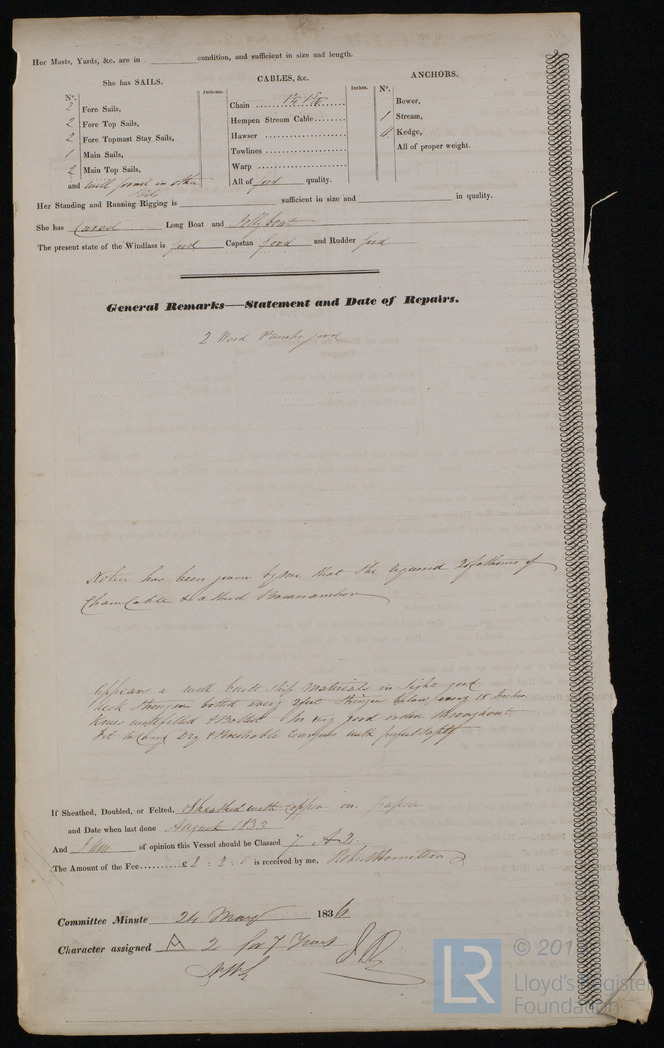 Her Masts, Yards, &c. are in condition, and sufficient in size and length.
She has SAILS.
Nº.
2 Fore Sails,
2 Fore Top Sails,
2 Fore Topmast Stay Sails,
1 Main Sails,
2 Main Top Sails,
and well found in other
Sails
CABLES, &c.
Fathoms.
Inches.
Chain
Hempen Stream Cable
Hawser
Towlines
Warp
All of good quality.
ANCHORS.
Nº.
Bower,
1 Stream,
Kedge,
All of proper weight.
Her Standing and Running Rigging is sufficient in size and in quality.
She has Long Boat and Jolly boat
The present state of the Windlass is good Capstan good and Rudder good
General Remarks—Statement and Date of Repairs.
2 Wood Pumps good
Notice has been given by me that she required 20 fathoms of
Chain Cable & a third Bower anchor
Appears a well built ship Materials in sight good
deck Stringer bolted every 2 feet Stringer below 18 Inches
Knees well fitted & Bolted In very good order throughout
fit to Carry Dry & Perishable Cargoes with perfect safety
If Sheathed, Doubled, or Felted, Sheathed with Copper on paper
and Date when last done August 1833
And I am of opinion this Vessel should be Classed 7 A 2.
The Amount of the Fee £ 2 : 2 : 0 is received by me, Robt Hamilton
Committee Minute 24 May 1836
Character assigned A 2 for 7 Years
LR
© 201
Lloyd's Register
Foundation